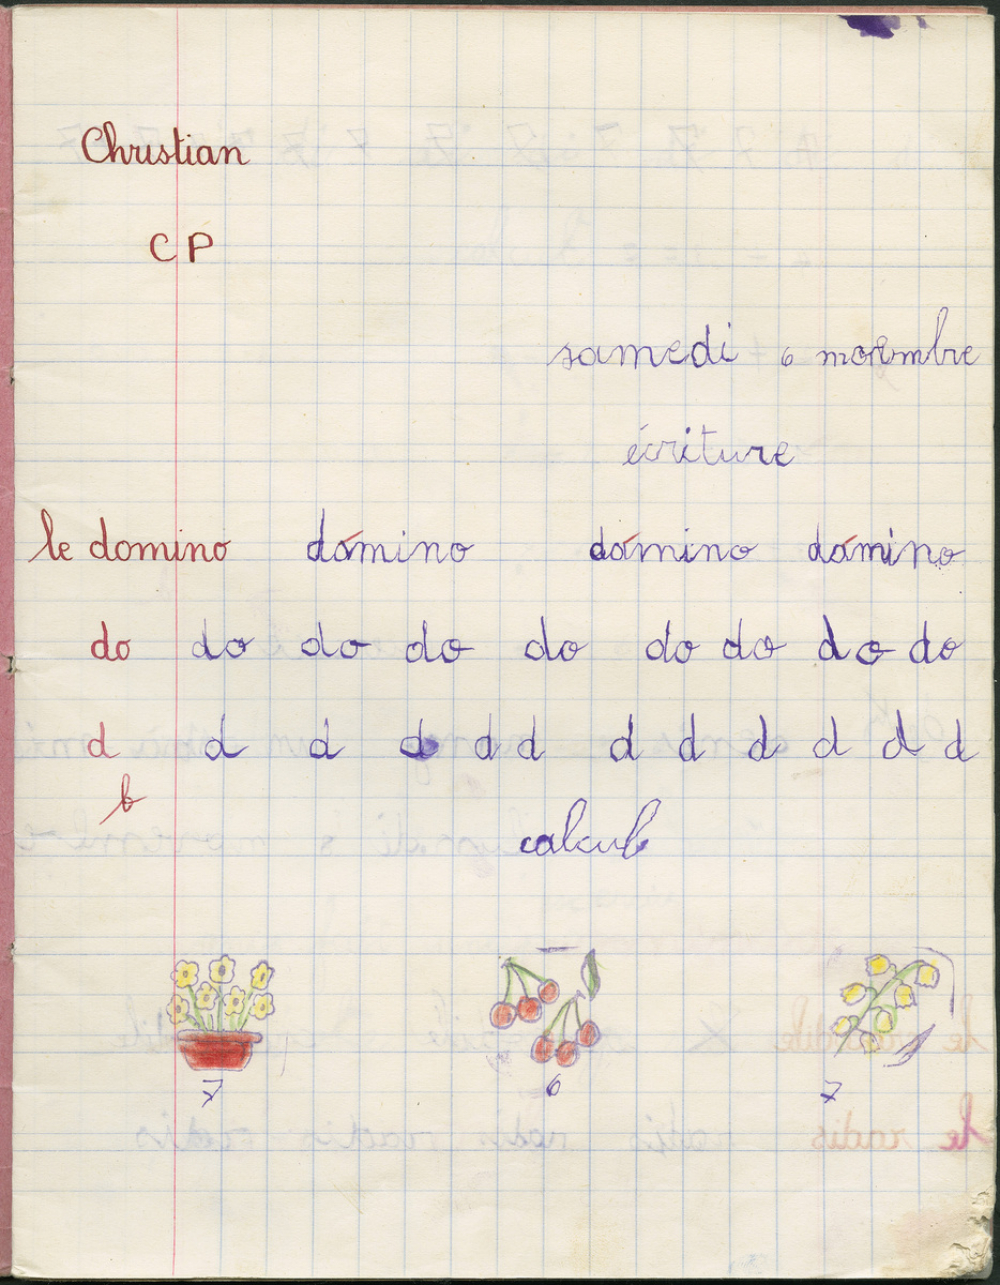 Christian
CP
samedi 6 novembre
écriture
le domino domino domino domino
do do do do do do do do do
d d d d d d d d d d d d
b
calcul
7 6 7